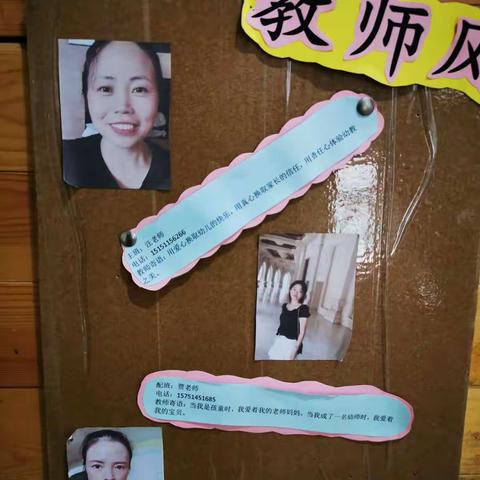 教师风
主班：汪老师
电话：15151156266
教师寄语：用爱心换取幼儿的快乐，用真心换取家长的信任，用责任心体验幼教
之美。
配班：贾老师
电话：15751451685
教师寄语：当我是孩童时，我爱着我的老师妈妈，当我成了一名幼师时，我爱着
我的宝贝。